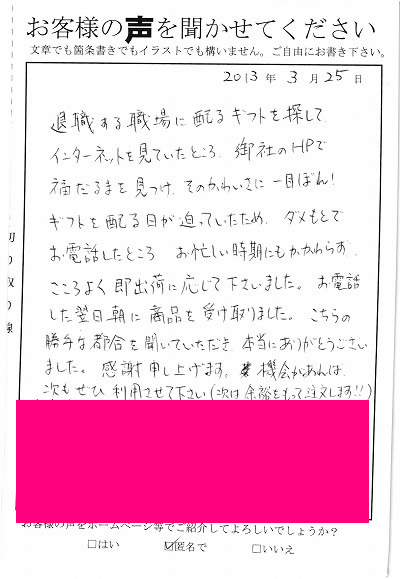 お客様の声を聞かせてください
文章でも箇条書きでもイラストでも構いません。ご自由にお書き下さい。
2013年 3月 25日
退職する職場に配るギフトを探して、
インターネットを見ていたところ、御社のHPで
福だるまを見つけ、そのかわいさに一目ぼれ!
ギフトを配る日が迫っていたため、ダメもとで
お電話したところ お忙しい時期にもかかわらず、
こころよく即出荷に応じて下さいました。お電話
した翌日朝に商品を受け取りました。こちらの
勝手な都合を聞いていただき、本当にありがとうござい
ました。感謝申し上げます。機会があれば、
次もぜひ利用させて下さい(次は余裕をもって注文します!!)
切り取り線
お客様の声をホームページ等でご紹介してよろしいでしょうか?
□はい ☑匿名で □いいえ